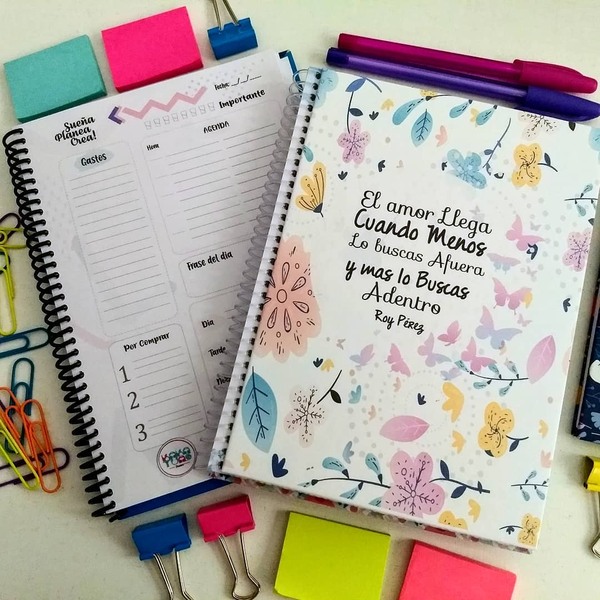 Sueña
Planea
Crea!
Fecha: __/__/__
Importante
Gastos
AGENDA
Hora
Frase del día
Dia
Tarde
Por Comprar
1
2
3
El amor Llega
Cuando Menos
Lo buscas Afuera
y mas lo Buscas
Adentro
Roy Pérez